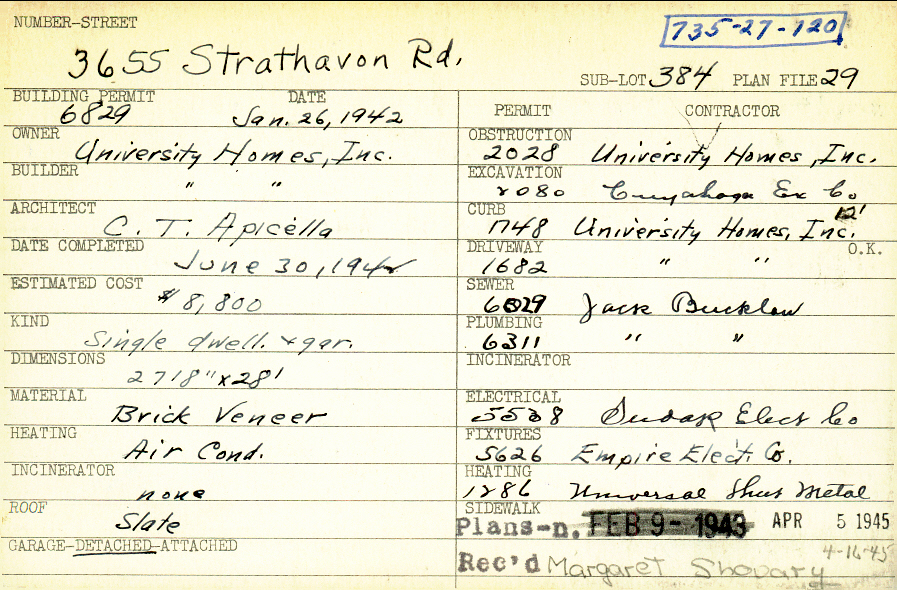 NUMBER-STREET
735-27-120
3655 Strathavon Rd.
SUB-LOT 384 PLAN FILE 29
BUILDING PERMIT DATE
6829 Jan. 26, 1942
OWNER
University Homes, Inc.
BUILDER
" "
ARCHITECT
C. T. Apicella
DATE COMPLETED
June 30, 1942
ESTIMATED COST
$8,800
KIND
Single dwell. & gar.
DIMENSIONS
27'8" x 28'
MATERIAL
Brick Veneer
HEATING
Air Cond.
INCINERATOR
none
ROOF
Slate
GARAGE-DETACHED-ATTACHED
PERMIT CONTRACTOR
OBSTRUCTION
2028 University Homes, Inc.
EXCAVATION
2080 Cuyahoga Ex Co
CURB 12'
1748 University Homes, Inc.
DRIVEWAY O.K.
1682 " "
SEWER
6029 Jack Bucklow
PLUMBING
6311 " "
INCINERATOR
ELECTRICAL
Elect Co
FIXTURES
5626 Empire Elect. Co.
HEATING
1286 Universal Sheet Metal
SIDEWALK
Plans-n. FEB 9-1943 APR 5 1945
4-16-45
Rec'd Margaret Shovary